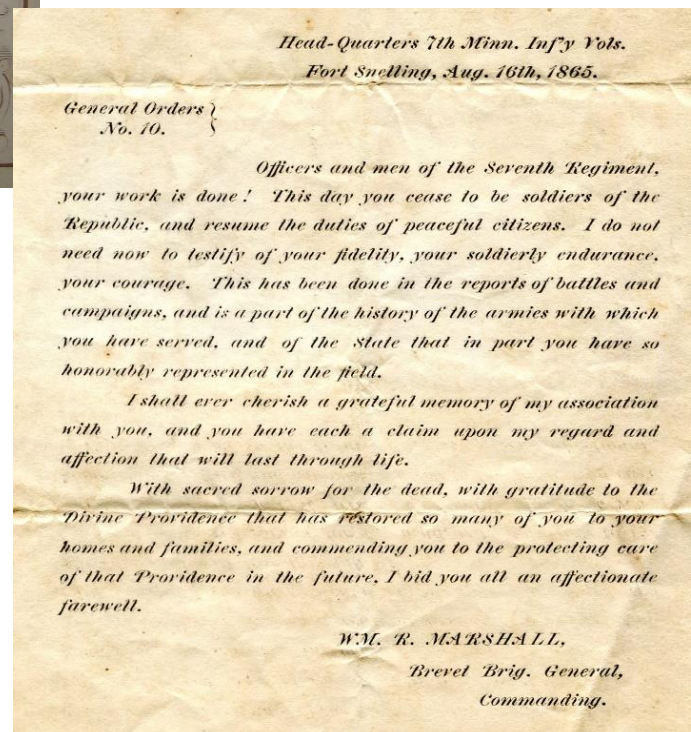 Head-Quarters 7th Minn. Inf'y Vols.
Fort Snelling, Aug. 16th, 1865.
General Orders
No. 10.
Officers and men of the Seventh Regiment,
your work is done! This day you cease to be soldiers of the
Republic, and resume the duties of peaceful citizens. I do not
need now to testify of your fidelity, your soldierly endurance,
your courage. This has been done in the reports of battles and
campaigns, and is a part of the history of the armies with which
you have served, and of the State that in part you have so
honorably represented in the field.
I shall ever cherish a grateful memory of my association
with you, and you have each a claim upon my regard and
affection that will last through life.
With sacred sorrow for the dead, with gratitude to the
Divine Providence that has restored so many of you to your
homes and families, and commending you to the protecting care
of that Providence in the future, I bid you all an affectionate
farewell.
WM. R. MARSHALL,
Brevet Brig. General,
Commanding.